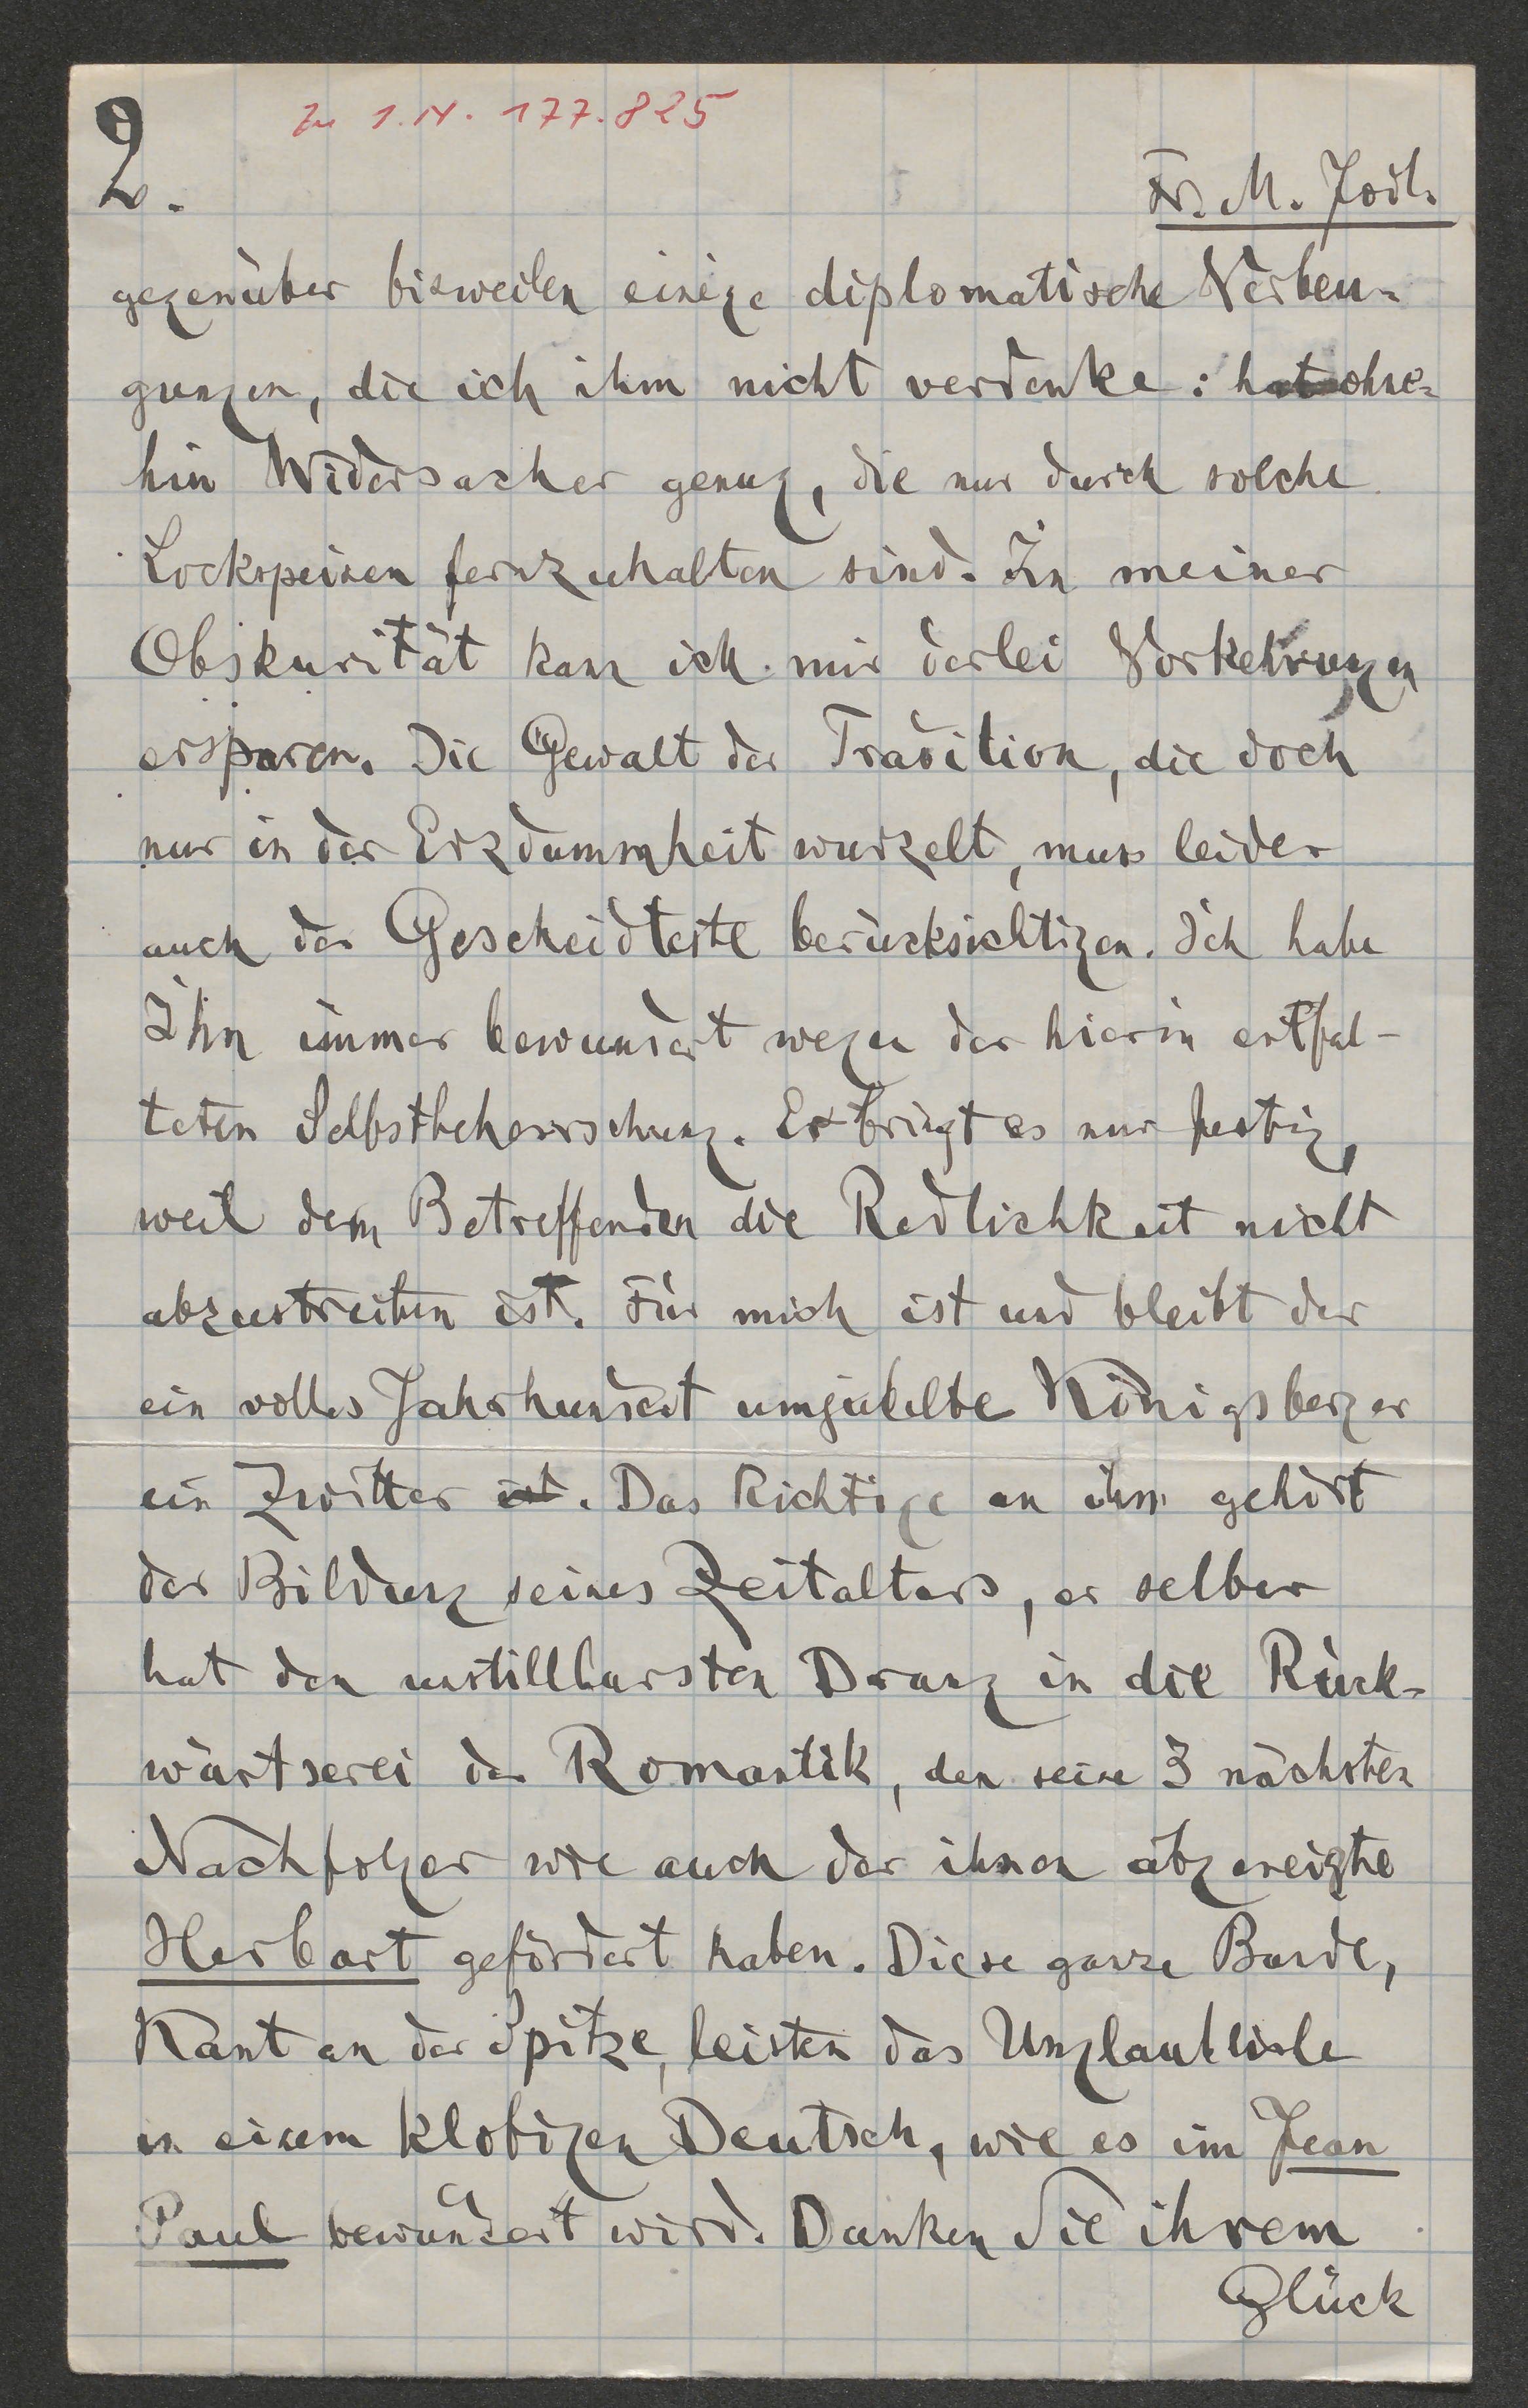 2.
Zu I.N. 177.825
Fr. M. Jodl.
gegenüber bisweilen einige diplomatische Verbeu-
gungen, die ich ihm nicht verdenke: hat ohne-
hin Widersacher genug, die nur durch solche
Lockspeisen fernzuhalten sind. In meiner
Obskurität kann ich mir derlei Vorkehrungen
ersparen. Die Gewalt der Tradition, die doch
nur in der Erzdummheit wurzelt, muss leider
auch der Gescheidteste berücksichtigen. Ich habe
Ihn immer bewundert wegen der hierin entfal-
teten Selbstbeherrschung. Er bringt es nur fertig,
weil dem Betreffenden die Redlichkeit nicht
abzustreiten ist. Für mich ist und bleibt der
ein volles Jahrhundert umjubelte Königsberger
ein Zwitter ist. Das Richtige an ihm gehört
der Bildung seines Zeitalters, er selber
hat den unstillbarsten Drang in die Rück-
wärtserei der Romantik, den seine 3 nächsten
Nachfolger wie auch der ihnen abgeneigte
Herbart gefördert haben. Diese ganze Bande,
Kant an der Spitze, leisten das Unglaubliche
in einem klobigen Deutsch, wie es im Jean
Paul bewundert wird. Danken Sie ihrem
Glück